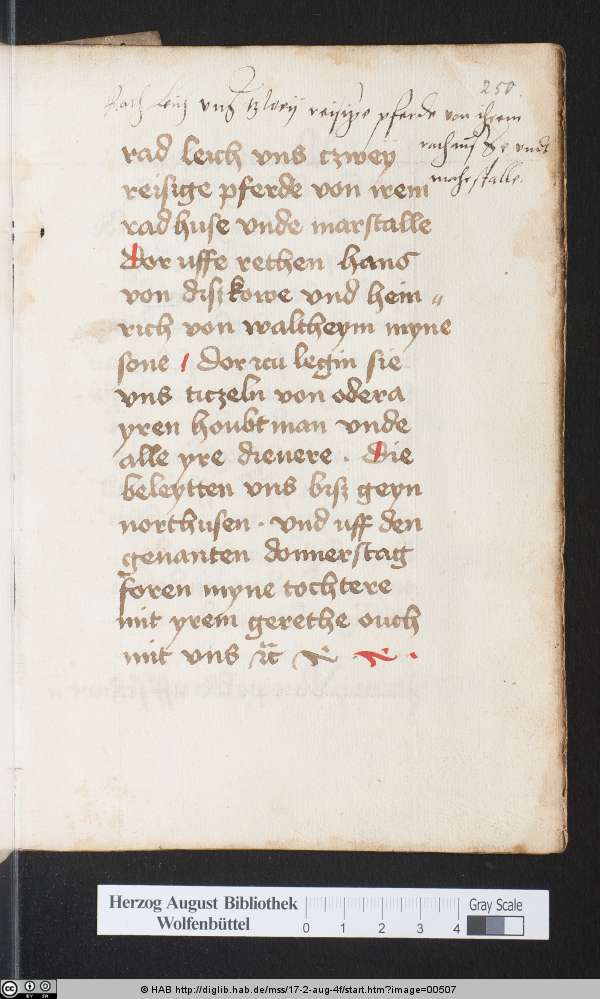 250.
Rath leich unß tzweij reisige pferde von ihrem
rathuß unde
marstalle.
rad leich vns czwey
reisige pferde von irem
rad huse vnde marstalle
Dor uffe rethen hans
von diszkowe vnd hein„
rich von waltheym myne
sone / Dor czu legin sie
vns ticzeln von odera
yren houbtman vnde
alle yre dienere . Die
beleytten vns bisz geyn
northusen . vnd uff den
genanten donnerstag
foren myne tochtere
mit yrem gerethe ouch
mit vns
Herzog August Bibliothek
Wolfenbüttel
0 1 2 3 4
Gray Scale
© HAB http://diglib.hab.de/mss/17-2-aug-4f/start.htm?image=00507